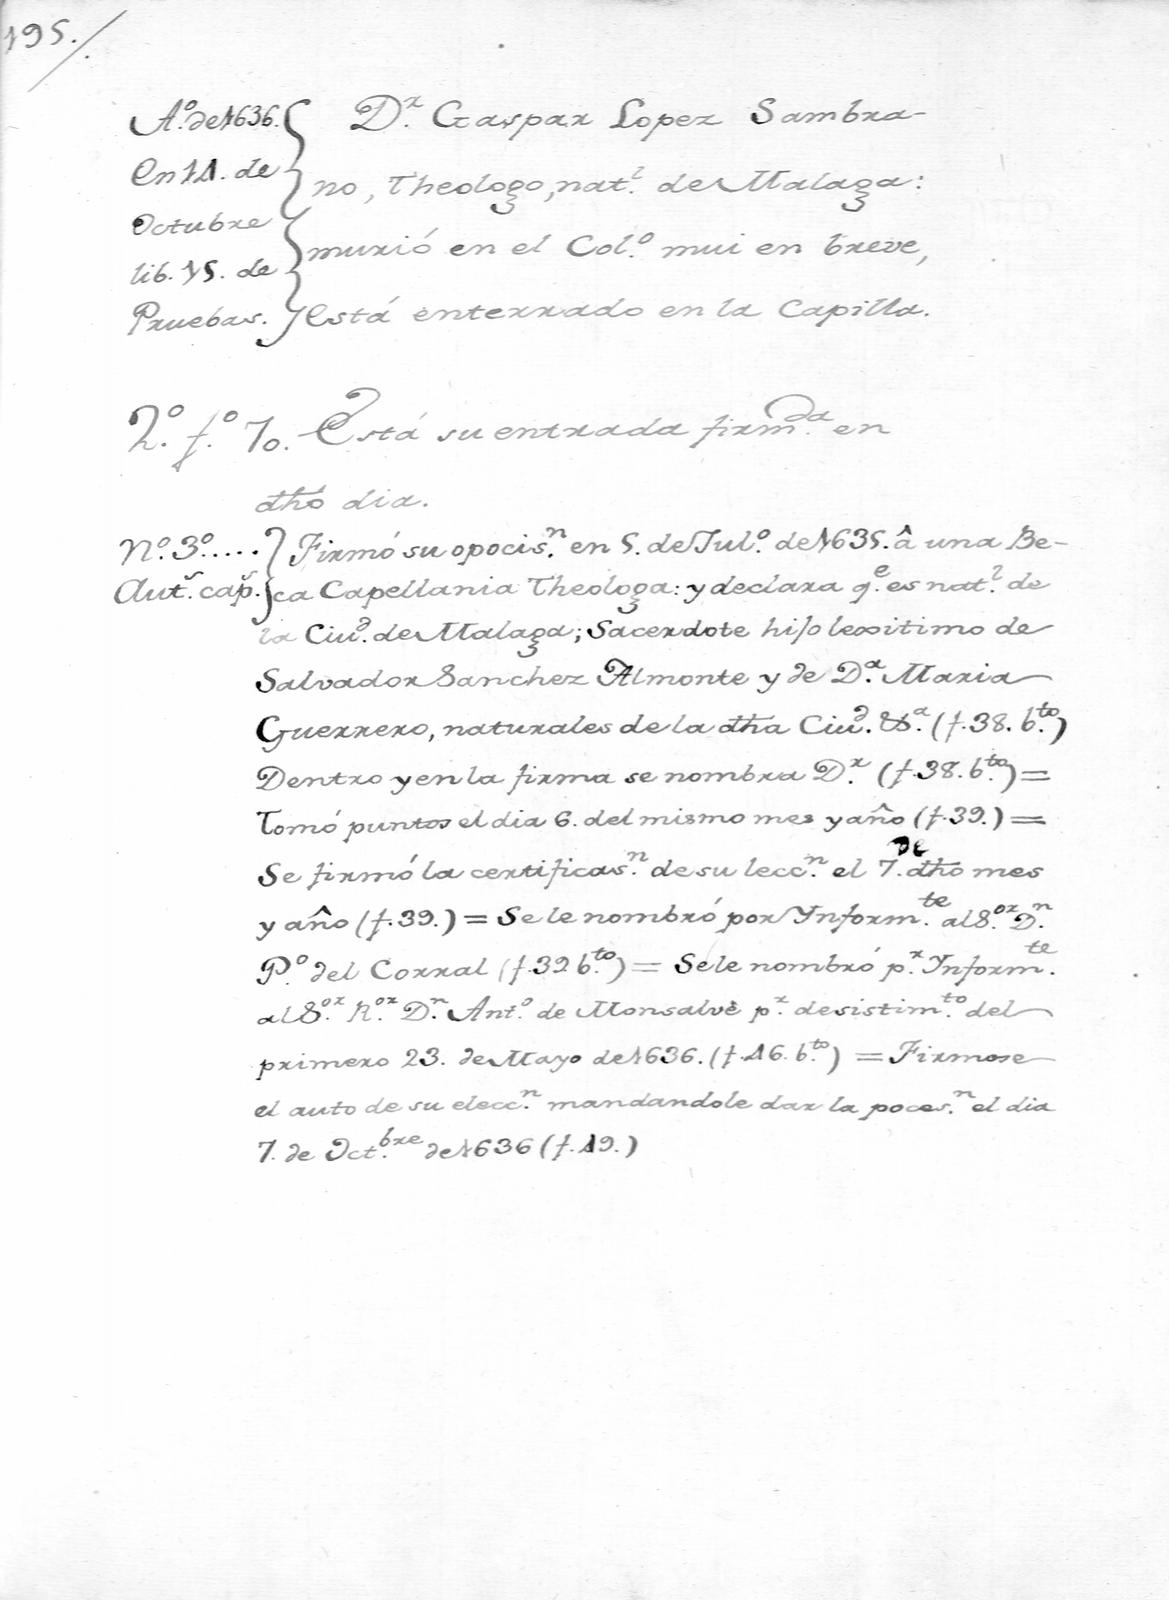 195.
A.º de 1636.
en 14. de
Octubre
lib. 15. de
Pruebas.
D.r Gaspar Lopez Sambra-
no, Theologo, nat.l de Malaga:
murió en el Col.º mui en breve,
está enterrado en la Capilla.
2.º f.º 70. Está su entrada firm.da en
dhó dia.
N.º 3.º.....
Aut.s cap.s
Firmó su opocis.n en 5. de Jul.º de 1635. â una Be-
ca Capellania Theologa: y declara q.e es nat.l de
la Ciu.d de Malaga; Sacerdote hijo lexitimo de
Salvador Sanchez Almonte y de D.a Maria
Guerrero, naturales de la dha Ciu.d &.a (f.38. b.to)
Dentro y en la firma se nombra D.r (f.38. b.to) =
Tomó puntos el dia 6. del mismo mes y año (f.39.) =
Se firmó la certificas.n de su lecc.n el 7. de dho mes
y año (f.39.) = Se le nombró por Ynform.te al S.or D.n
P.º del Corral (f.39 b.to) = Se le nombró p.r Ynform.te
al S.or R.or D.n Ant.º de Monsalve p.r desistim.to del
primero 23. de Mayo de 1636. (f.46. b.to) = Firmose
el auto de su elecc.n mandandole dar la poces.n el dia
7. de Oct.bre de 1636 (f.49.)